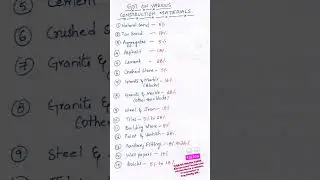 GST ON VARIOUS
CONSTRUCTION MATERIALS
① Natural Sand - 5%
② Dam Sand -
③ Aggregates - 5%
④ Asphalt - 18%
⑤ Cement - 28%
⑥ Crushed Stone - 5%
⑦ Granite & Marble - 12%
(Blocks)
⑧ Granite & Marble - 28%
(other than blocks)
⑨ Steel & Iron - 18%
⑩ Tiles - 5% to 28%
⑪ Building Stone - 5%
⑫ Paint & Varnish - 28%
⑬ Sanitary Fittings -
⑭ Wall papers -
⑮ Bricks - 5% to
⑤ Cement
⑥ Crushed
⑦ Granite &
⑧ Granite &
(other
⑨ Steel &